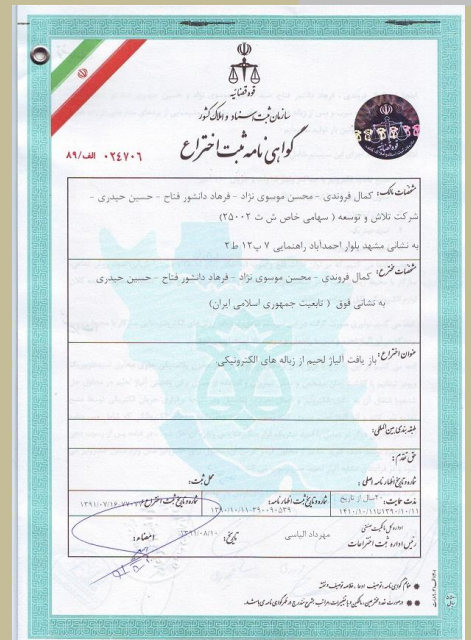 قوه قضائیه
سازمان ثبت اسناد و املاک کشور
گواهی نامه ثبت اختراع
۰۲۴۷۰۶ الف/۸۹
مشخصات مالک: کمال فروندی - محسن موسوی نژاد - فرهاد دانشور فتاح - حسین حیدری -
شرکت تلاش و توسعه ( سهامی خاص ش ت ۲۵۰۰۲)
به نشانی مشهد بلوار احمدآباد راهنمایی ۷ پ۱۲ ط۲
مشخصات مخترع: کمال فروندی - محسن موسوی نژاد - فرهاد دانشور فتاح - حسین حیدری
به نشانی فوق ( تابعیت جمهوری اسلامی ایران)
عنوان اختراع: باز یافت آلیاژ لحیم از زباله های الکترونیکی
طبقه بندی بین المللی:
حق تقدم:
شماره و تاریخ اظهارنامه اصلی: محل ثبت:
مدت حمایت: ۲۰سال از تاریخ شماره و تاریخ ثبت اظهارنامه: شماره و تاریخ ثبت اختراع:
۱۳۹۰/۱۰/۱۱تا۱۴۱۰/۱۰/۱۱ ۱۳۹۰/۱۰/۱۱-۳۹۰۰۹۰۵۳۹
اداره کل مالکیت صنعتی
رئیس اداره ثبت اختراعات مهرداد الیاسی تاریخ: ۱۳۹۱/۰۸/۱۰ امضاء: